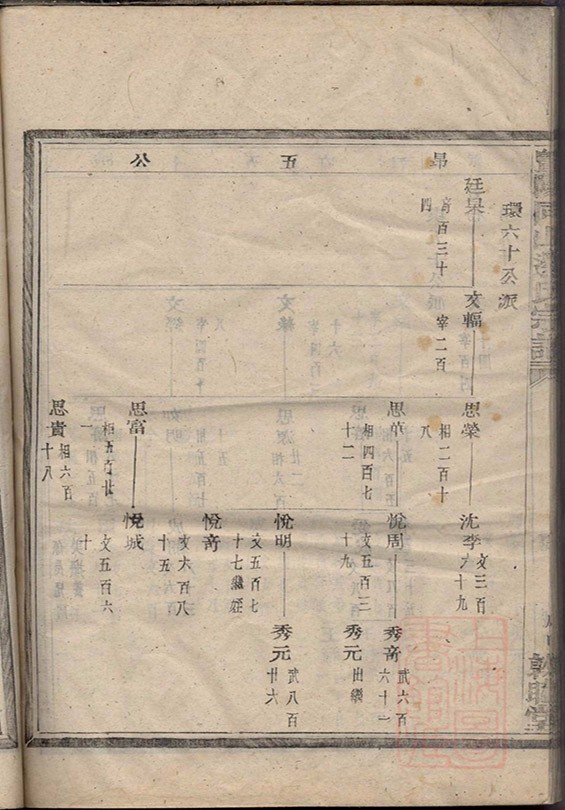 昂 五 公
環六十公派
廷杲
奇百三十四
文輻
宰二百
思榮
相二百十八
沈李
文三百六十九
思華
相四百七十二
悅周
文五百二十九
秀奇
武六百六十一
秀元
出繼
悅明
文五百七十七繼姪
秀元
武八百廿六
悅奇
文六百八十五
思富
相五百廿一
悅城
文五百六十
思貴
相六百十八